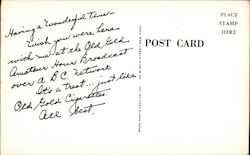 Having a Wonderful Time -
Wish you were here
with me at the Old Gold
Amateur Hour Broadcast
over A B C network
It's a treat... just like
Old Gold Cigarettes
All Best.
POST CARD
PLACE
STAMP
HERE